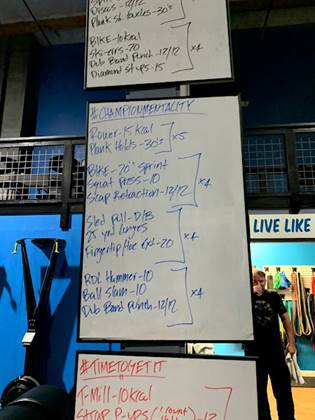 Discus-12/12
Plank sh. touches-30's
BIKE-10kcal
Ski-ergs-20
Dub Band Punch-12/12
Diamond St ups-15
x4
#CHAMPIONMENTACITY
Rower-15kcal
Plank Holds-30's
x5
BIKE-20's Sprint
Squat Press-10
Scap Retraction-12/12
x4
Sled pull-D/B
25 yrd lunges
Fingertip/toe -20
x4
RDL Hammer-10
Ball Slam-10
Dub Band Punch-12/12
x4
LIVE LIKE
#TIMETOGETIT
T-Mill-10kcal
STRAP P-ups (1 count
-12